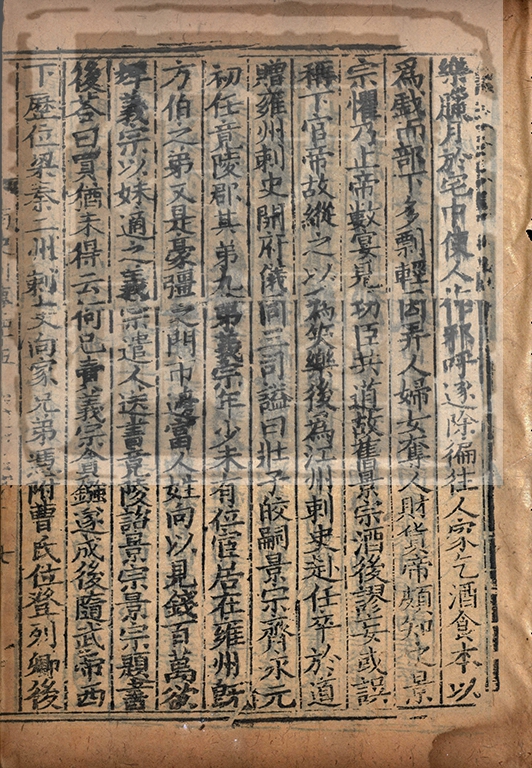 樂臘月於宅中使人作邪呼逐除徧往人家乞酒食本以
爲戲而部下多剽輕因弄人婦女奪人財貨帝頗知之景
宗懼乃止帝數宴見功臣共道故舊景宗酒後謬妄或誤
稱下官帝故縱之以爲笑樂後爲江州刺史赴任卒於道
贈雍州刺史開府儀同三司諡曰壯子皎嗣景宗齊永元
初任竟陵郡其弟九弟義宗年少未有位官居在雍州旣
方伯之弟又是豪彊之門市邊富人姓向以見錢百萬欲
埤義宗以妹適之義宗遣人送書竟陵諮景宗景宗題書
後答曰買猶未得云何已賣義宗貪鏹遂成後隨武帝西
下歷位梁秦二州刺史向家兄弟憑附曹氏位登列卿後